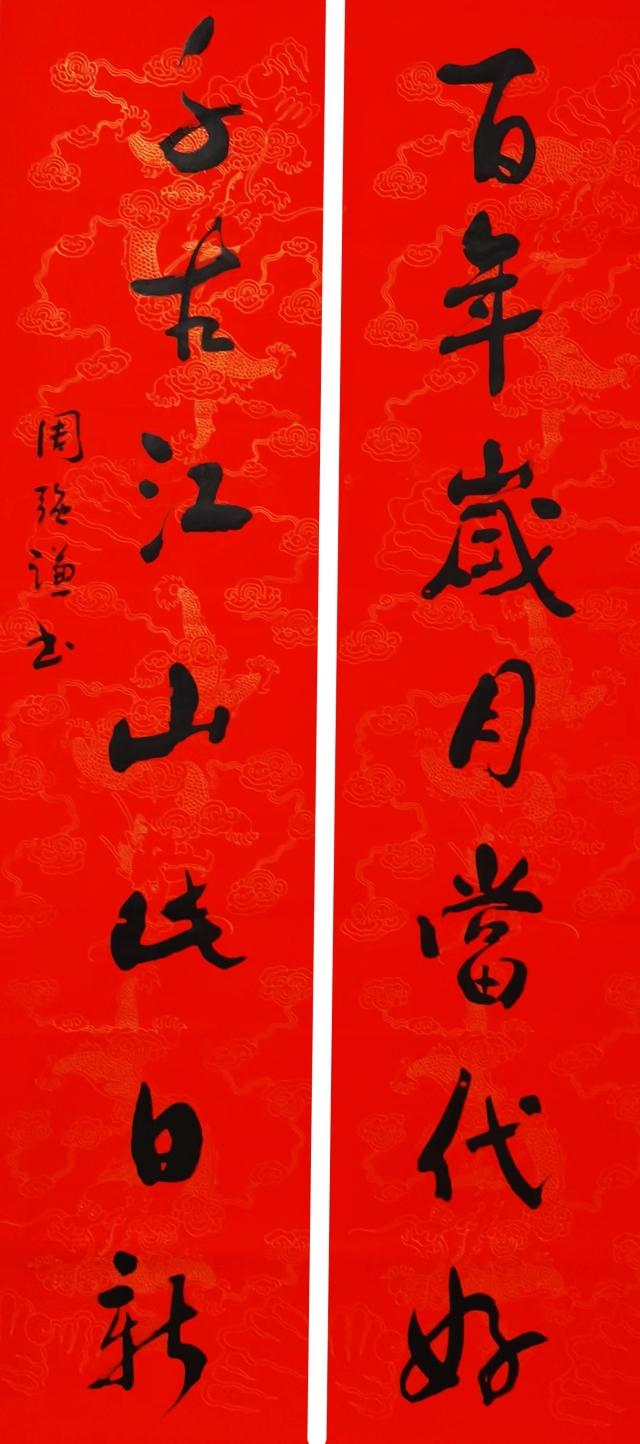 百年歲月當代好
千古江山此日新
周強謙书